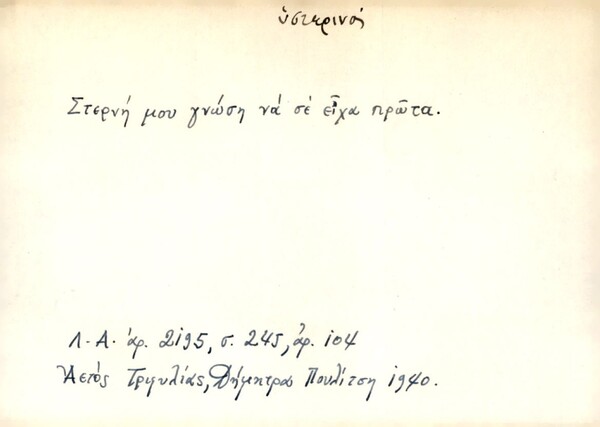 ὑστερινός
Στερνή μου γνώση νά σέ εἶχα πρῶτα.
Λ.Α. ἀρ. 2195, σ. 245, ἀρ. 104
Ἀετός Τριφυλίας, Δήμητρα Πουλίτση 1940.